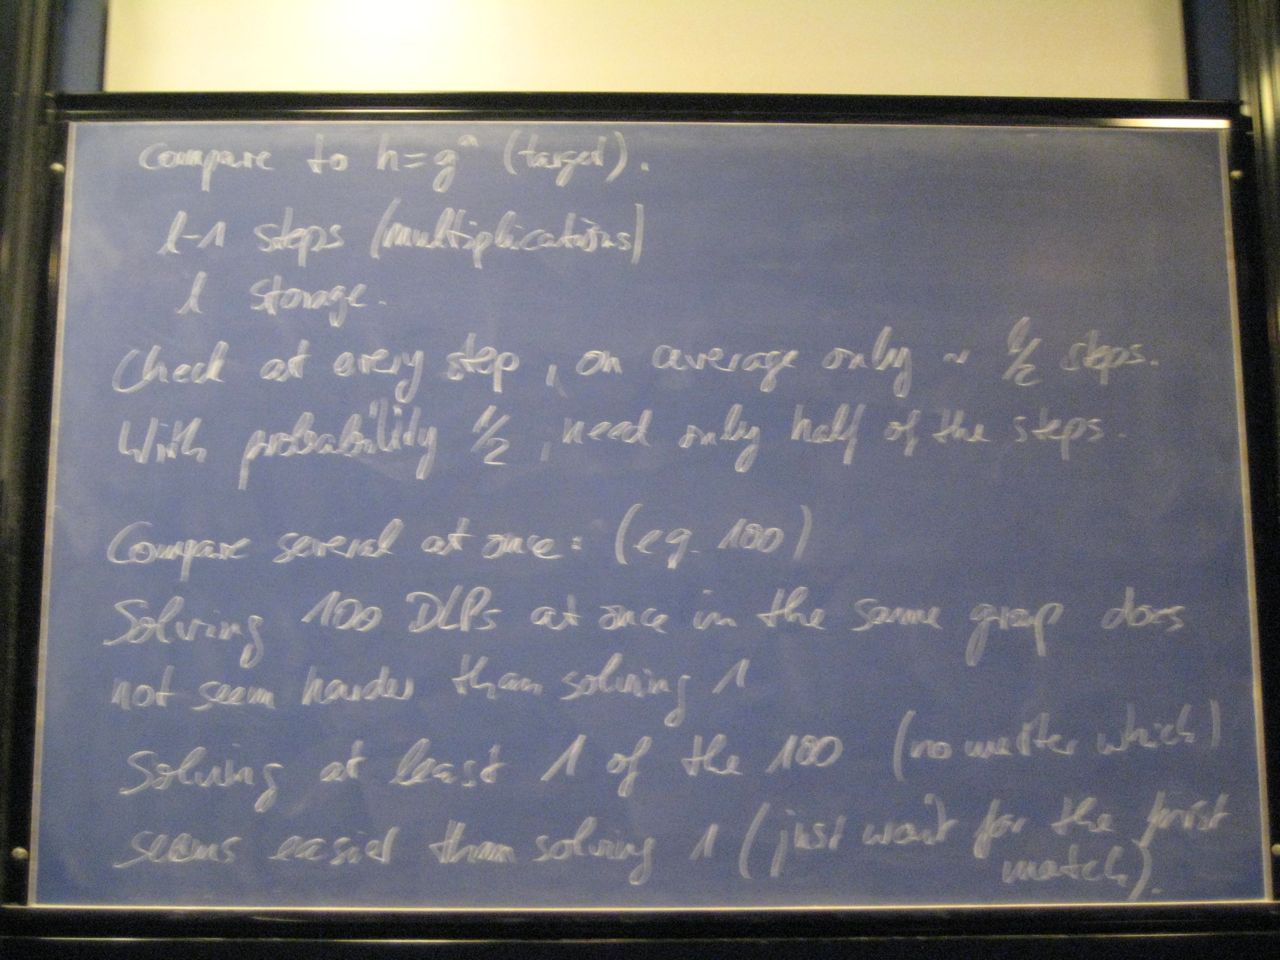 Compare to h=g^a (target).
l-1 steps (multiplications)
l storage.
Check at every step, on average only ~ l/2 steps.
With probability 1/2, need only half of the steps.
Compare several at once: (eg. 100)
Solving 100 DLPs at once in the same group does
not seem harder than solving 1
Solving at least 1 of the 100 (no matter which)
seems easier than solving 1 (just wait for the first
match).